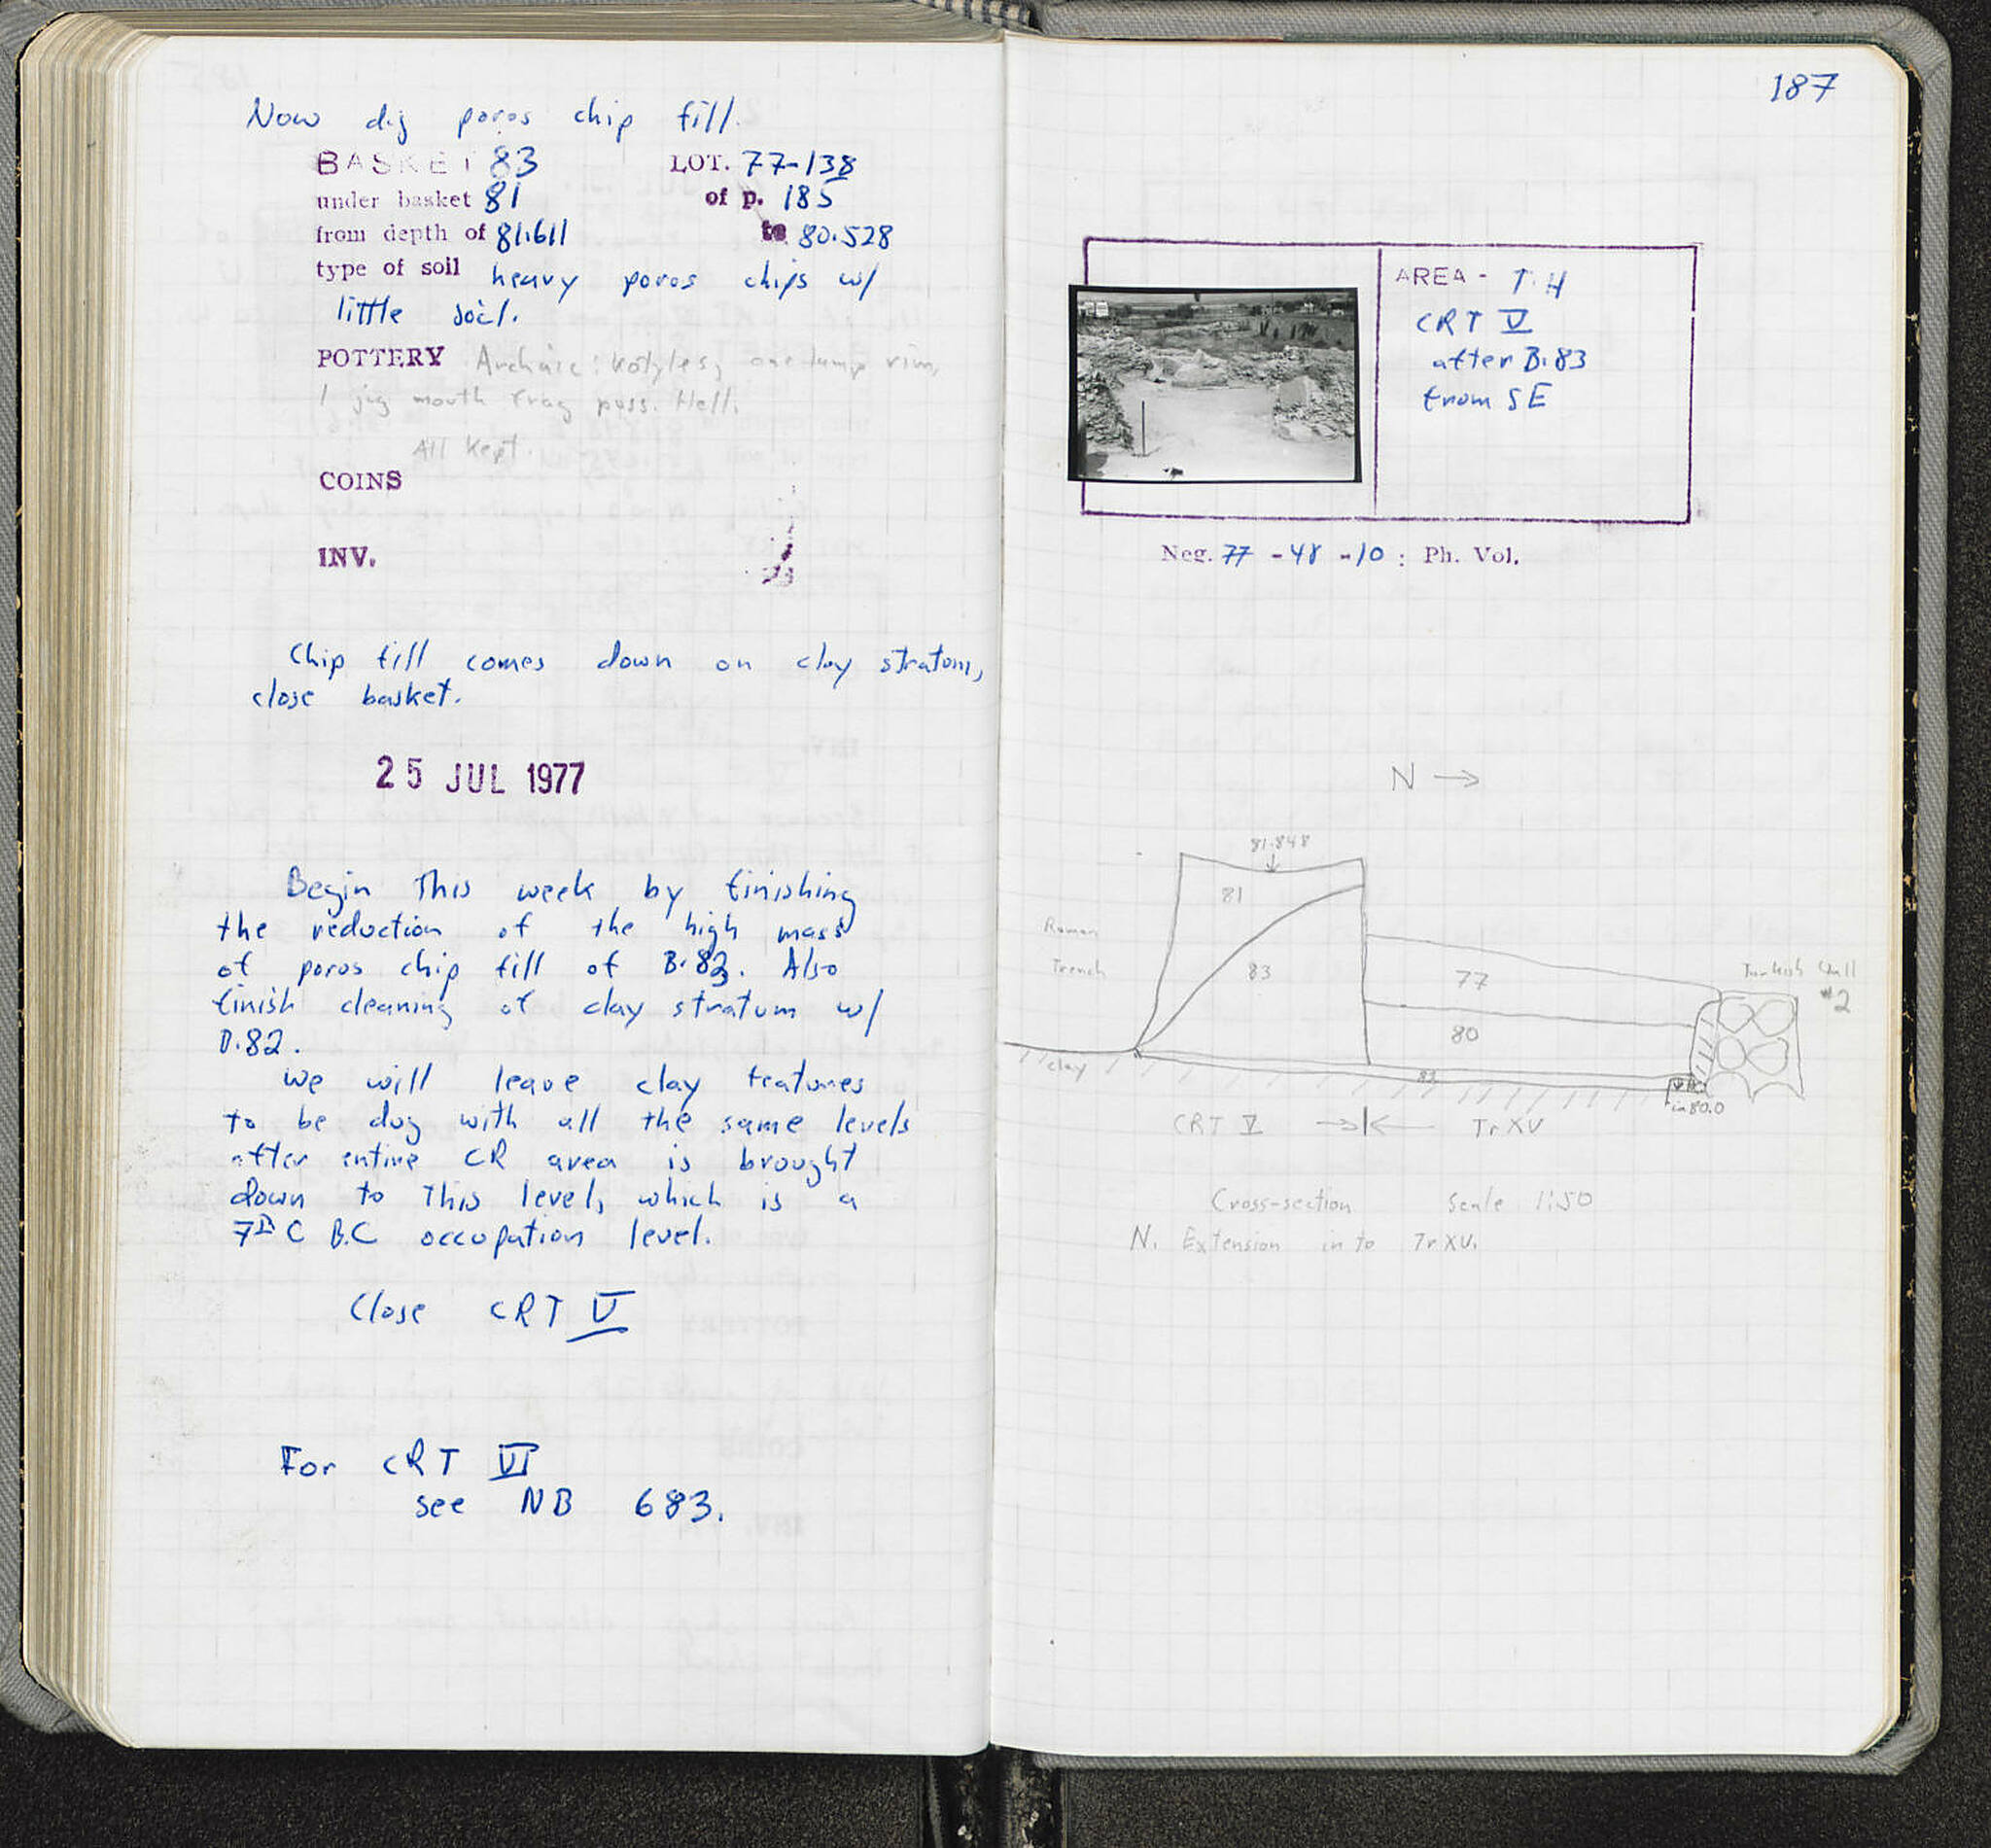 Now dig poros chip fill.
BASKET 83 LOT. 77-138
under basket 81 of p. 185
from depth of 81.611 to 80.528
type of soil heavy poros chips w/
little soil.
POTTERY Archaic: kotyles, one lamp rim,
1 jug mouth frag poss. Hell.
All kept.
COINS
INV.
Chip fill comes down on clay stratum,
close basket.
25 JUL 1977
Begin this week by finishing
the reduction of the high mass
of poros chip fill of B.83. Also
finish cleaning of clay stratum w/
B.82.
We will leave clay features
to be dug with all the same levels
after entire CR area is brought
down to this level, which is a
7th C B.C occupation level.
Close CRT V
For CRT VI
see NB 683.
187
AREA - T.H
CRT V
after B.83
from SE
Neg. 77-48-10 : Ph. Vol.
N →
81.848
81
Roman
Trench
83
77
Turkish Wall
#2
80
clay
83
in 80.0
CRT V Tr XV
Cross-section Scale 1:50
N. Extension in to Tr XV.